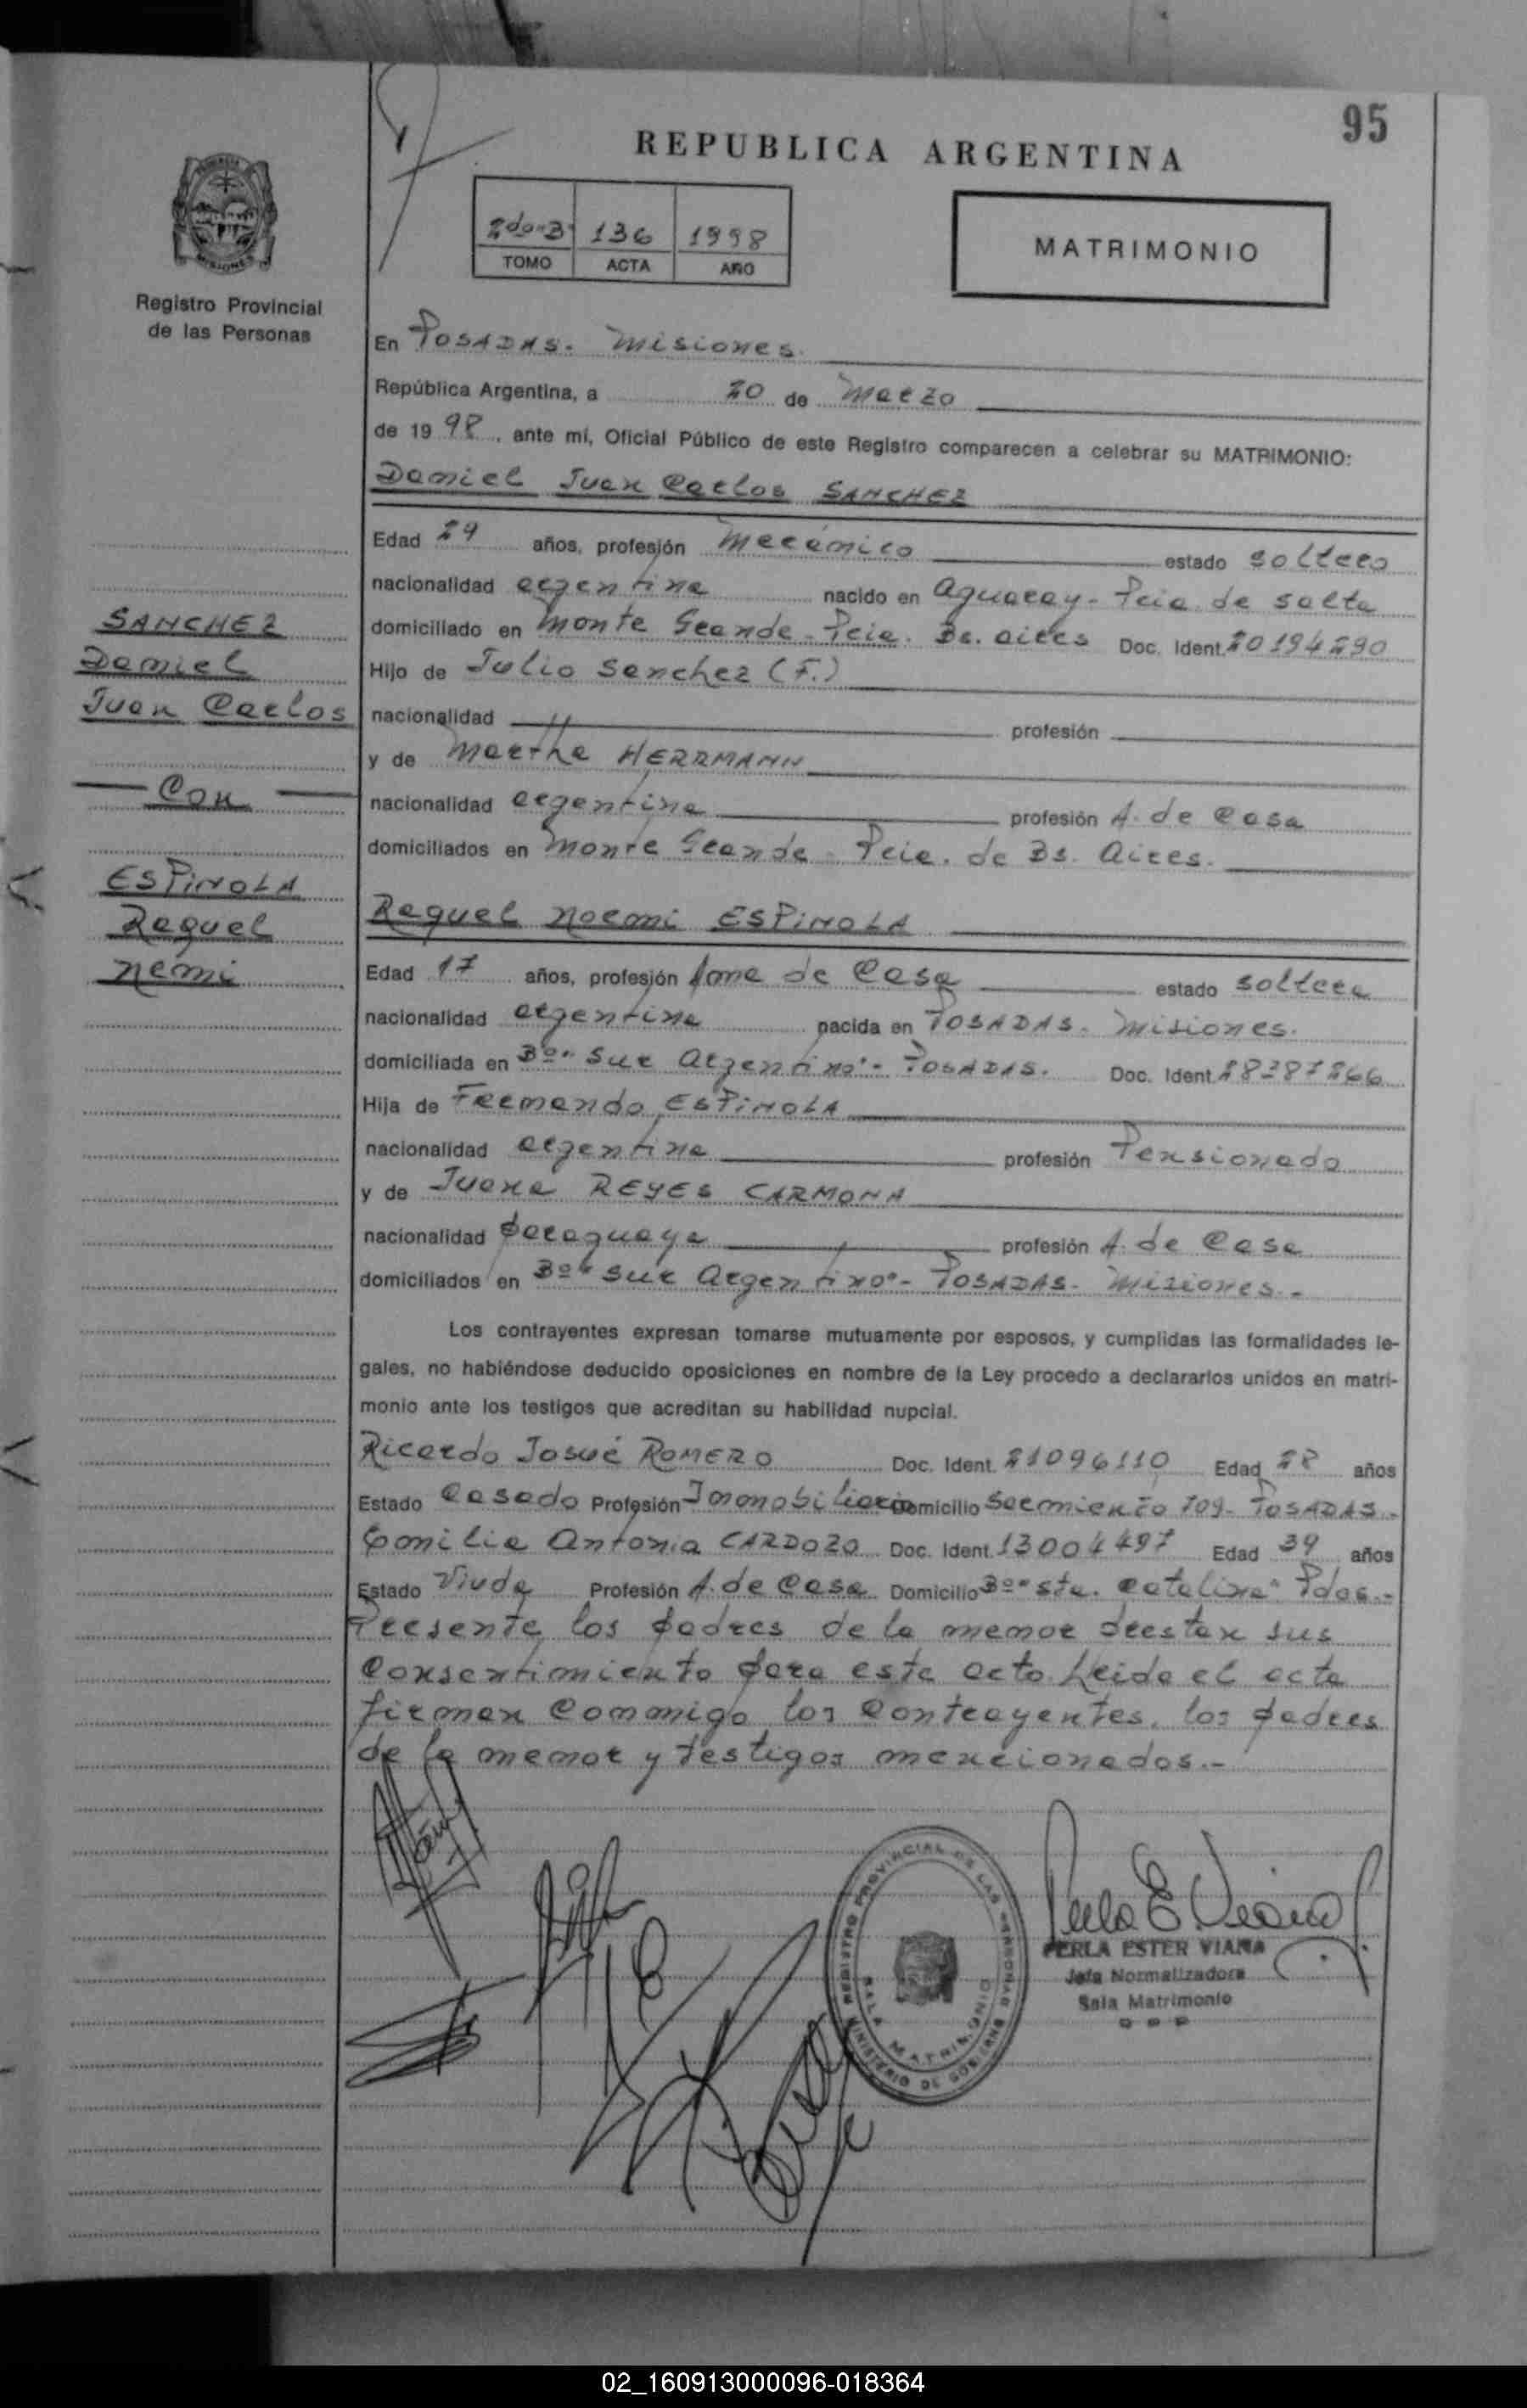 95
REPUBLICA ARGENTINA
2do-B 136 1998
TOMO ACTA AÑO
MATRIMONIO
MISIONES
Registro Provincial
de las Personas
En Posadas. Misiones.
República Argentina, a 20 de Marzo
de 19 98, ante mí, Oficial Público de este Registro comparecen a celebrar su MATRIMONIO:
Daniel Juan Carlos SANCHEZ
Edad 29 años, profesión Mecánico estado soltero
nacionalidad argentina nacido en Aguaray - Pcia de Salta
domiciliado en Monte Grande - Pcia. Bs. Aires Doc. Ident. 20194290
Hijo de Julio Sanchez (F.)
nacionalidad profesión
y de Martha HERRMANN
nacionalidad argentina profesión A. de Casa
domiciliados en Monte Grande - Pcia. de Bs. Aires.
SANCHEZ
Daniel
Juan Carlos
Con
ESPINOLA
Raquel
Nemi
Raquel Noemi ESPINOLA
Edad 17 años, profesión Ama de Casa estado soltera
nacionalidad argentina nacida en POSADAS. Misiones.
domiciliada en Bº" Sur Argentino"- POSADAS. Doc. Ident. 28387266
Hija de Fernando ESPINOLA
nacionalidad argentina profesión Pensionado
y de Juana REYES CARMONA
nacionalidad paraguaya profesión A. de Casa
domiciliados en Bº" Sur Argentino"- POSADAS- Misiones.-
Los contrayentes expresan tomarse mutuamente por esposos, y cumplidas las formalidades le-
gales, no habiéndose deducido oposiciones en nombre de la Ley procedo a declararlos unidos en matri-
monio ante los testigos que acreditan su habilidad nupcial.
Ricardo Josué ROMERO Doc. Ident. 21096110 Edad 28 años
Estado Casado Profesión Inmobiliario Domicilio Sarmiento 709- POSADAS-
Emilia Antonia CARDOZO Doc. Ident. 13004497 Edad 39 años
Estado Viuda Profesión A. de Casa Domicilio Bº" Sta. Catalina" Pdas.-
Presente los padres de la menor prestan sus
consentimiento para este acto. Leida el acta
firman conmigo los contrayentes, los padres
de la menor y testigos mencionados.-
REGISTRO PROVINCIAL DE LAS PERSONAS
SALA MATRIMONIO
MINISTERIO DE GOBIERNO
Perla E. Viana
PERLA ESTER VIANA
Jefa Normalizadora
Sala Matrimonio
02_160913000096-018364